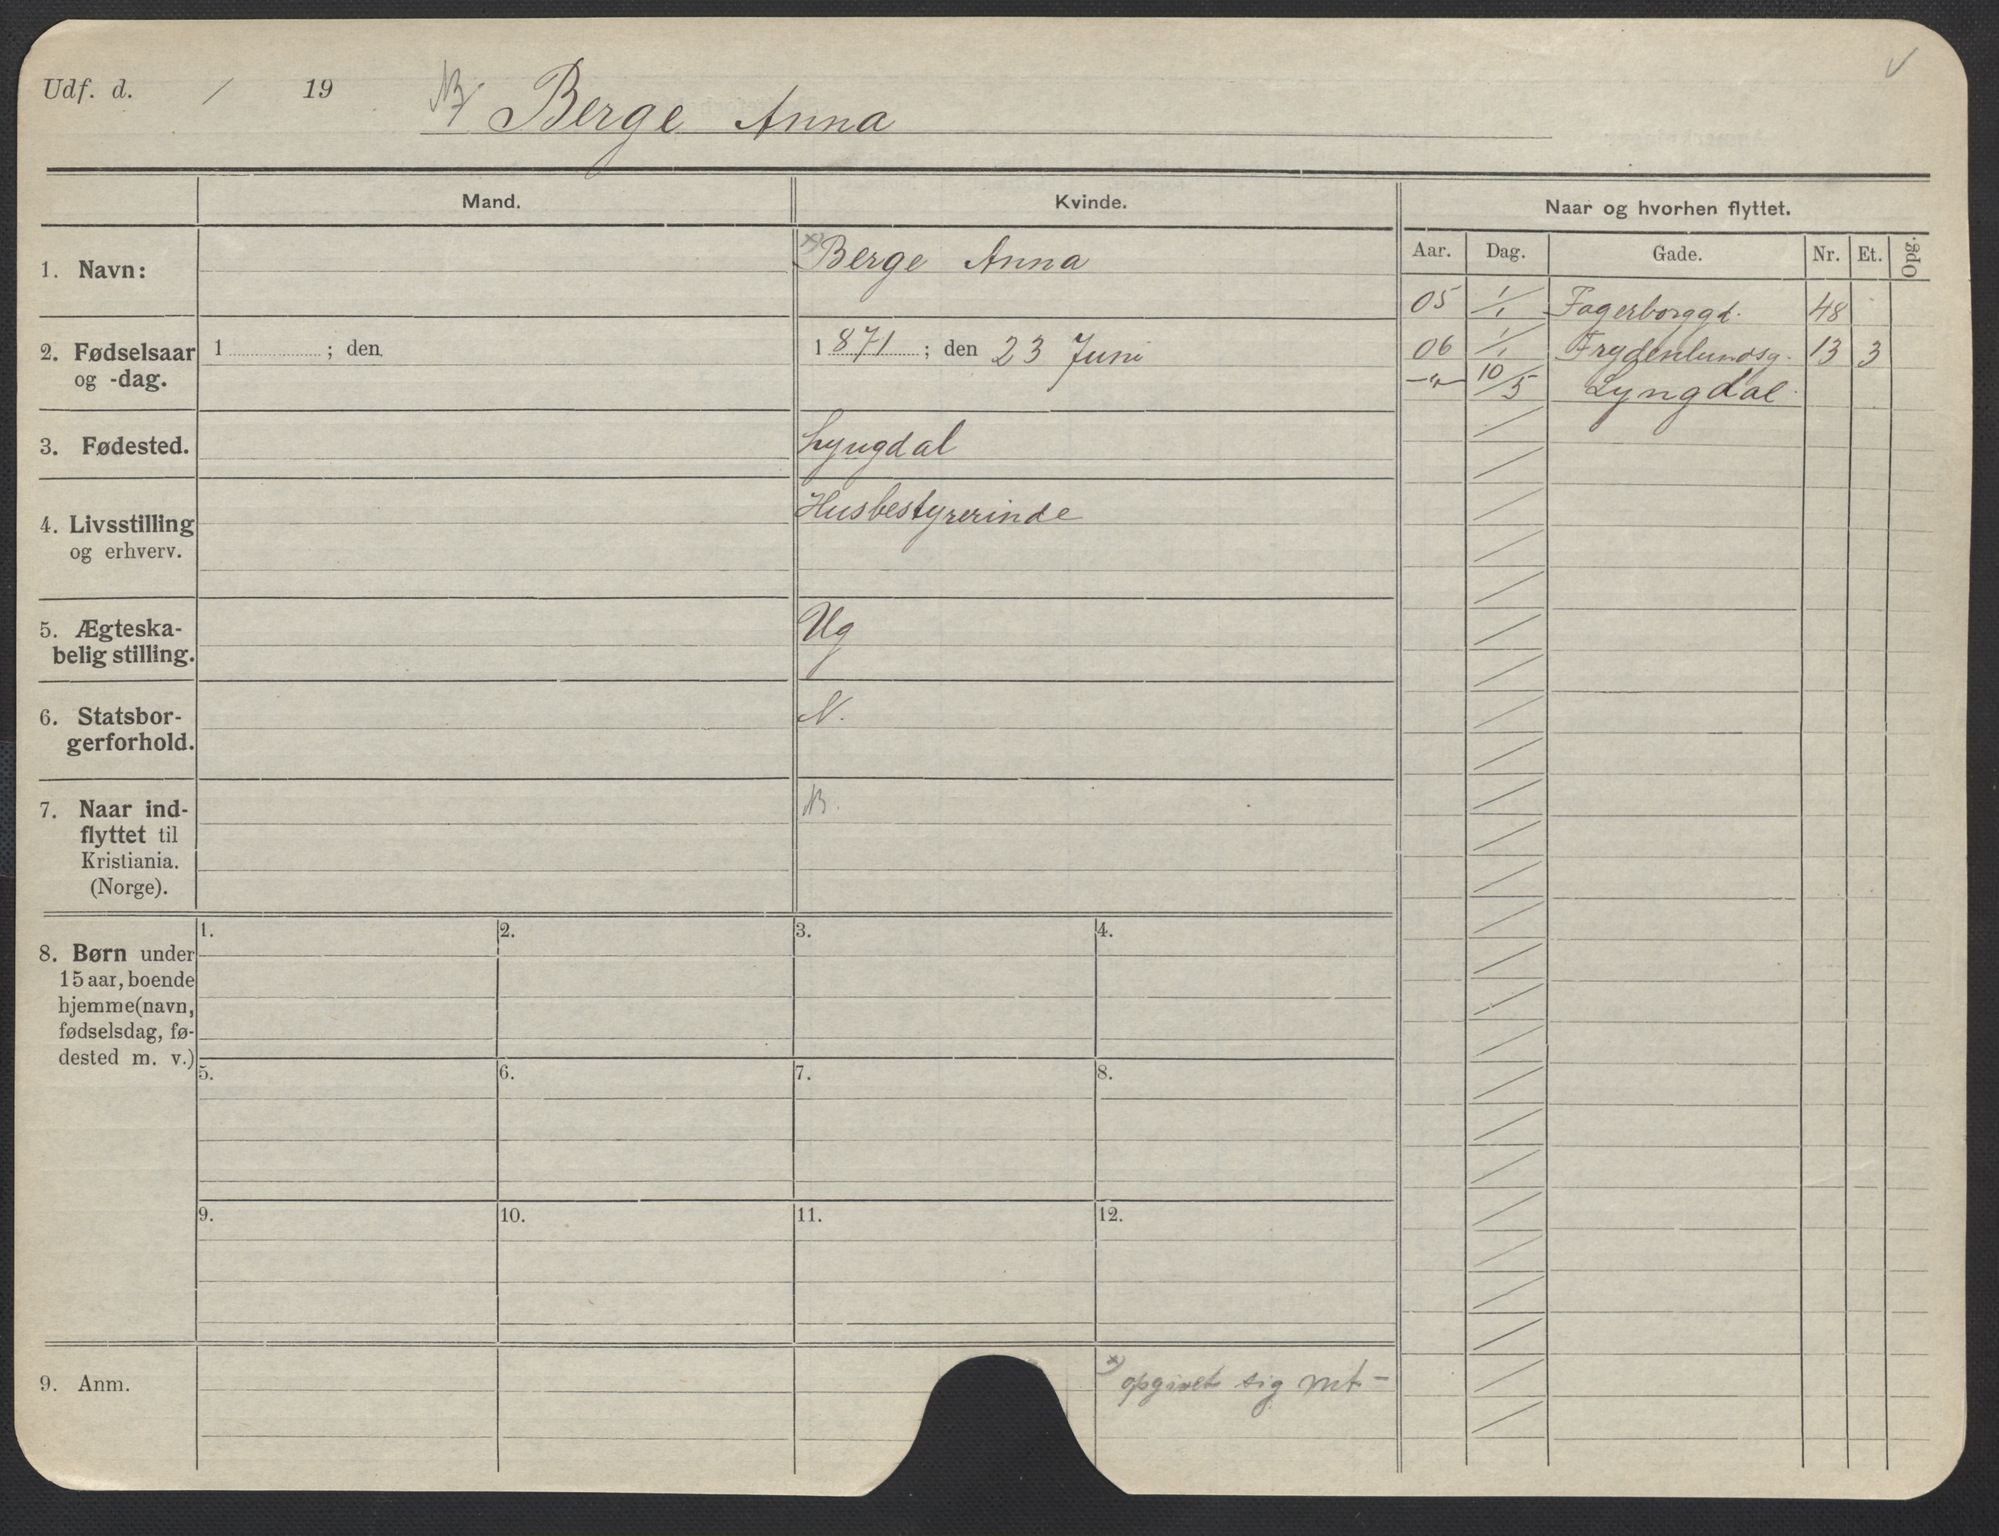 Udf. d. / 19
Berge Anna
Mand. Kvinde. Naar og hvorhen flyttet.
Aar. Dag. Gade. Nr. Et. Opg.
1. Navn: x) Berge Anna
05 1/1 Fagerborggd. 48
2. Fødselsaar 1 ; den 1871 ; den 23 Juni
og -dag.
06 1/1 Frydenlundsg. 13 3
-"- 10/5 Lyngdal.
3. Fødested. Lyngdal
4. Livsstilling Husbestyrerinde
og erhverv.
5. Ægteska- Ug
belig stilling.
6. Statsbor- N.
gerforhold.
7. Naar ind-
flyttet til
Kristiania.
(Norge).
8. Børn under 1. 2. 3. 4.
15 aar, boende
hjemme (navn,
fødselsdag, fø-
dested m. v.)
5. 6. 7. 8.
9. 10. 11. 12.
9. Anm. x) opgivet sig